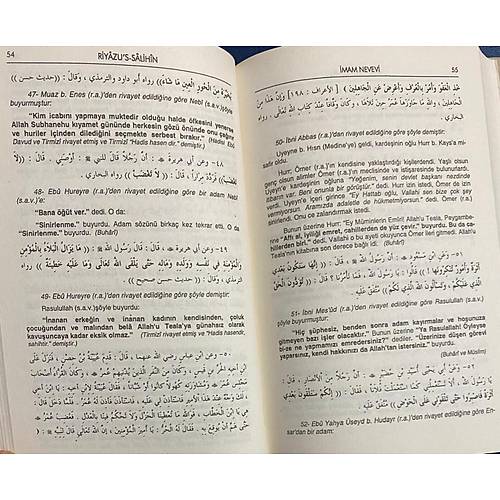 54
RİYÂZU'S-SÂLİHÎN
يُخَيِّرَهُ مِنَ الْحُورِ الْعِينِ مَا شَاءَ)) رواه أبو داود والترمذي ، وقال : ((حديث حسن ))
47- Muaz b. Enes (r.a.)'den rivayet edildiğine göre Nebî (s.a.v.)şöyle
buyurmuştur:
"Kim icabını yapmaya muktedir olduğu halde öfkesini yenerse
Allah Subhanehu kıyamet gününde herkesin gözü önünde onu çağırır
ve huriler içinden dilediğini seçmekte serbest bırakır." (Hadîsi Ebû
Davud ve Tirmizi rivayet etmiş ve Tirmizî "Hadis hasen dir." demiştir.)
٤٨- وعن أبي هريرة ﷺ : أَنَّ رَجُلاً قَالَ لِلنَّبِي ﷺ : أَوْصِنِي . قَالَ : ((
لاَ تَغْضَبْ )) فَرَدَّدَ مِرَاراً ، قَالَ : (( لاَ تَغْضَبْ )) رواه البخاري .
48- Ebû Hureye (r.a.)'den rivayet edildiğine göre bir adam Nebî
(s.a.v.)'e:
"Bana öğüt ver." dedi. O da:
"Sinirlenme." buyurdu. Adam sözünü birkaç kez tekrar etti. O:
"Sinirlenme." buyurdu. (Buharî)
٤٩- وعن أبي هريرة ﷺ ، قَالَ : قَالَ رَسُولُ الله ﷺ : (( مَا يَزَالُ الْبَلَاءُ بِالْمُؤْمِنِ
وَالْمُؤْمِنَةِ فِي نَفْسِهِ وَوَلَدِهِ وَمَالِهِ حَتَّى يَلْقَى اللهَ تَعَالَى وَمَا عَلَيْهِ خَطِيئَةٌ )) رواه
الترمذي ، وقال : (( حديث حسن صحيح )) .
49- Ebû Hureye (r.a.)'den rivayet edildiğine göre şöyle demiştir:
Rasulullah (s.a.v.)şöyle buyurdu:
"İnanan erkeğin ve inanan kadının kendisinden, çoluk
çocuğundan ve malından belâ Allahu Teala'ya günahsız olarak
kavuşuncaya kadar eksik olmaz." (Tirmizî rivayet etmiş ve "Hadis hasendir,
sahihtir." demiştir.)
٥٠- وعن ابن عباس رضي الله عنهما ، قَالَ : قَدِمَ عُيَيْنَةُ بْنُ حِصْنٍ ، فَنَزَلَ عَلَى
ابْنِ أَخِيهِ الْحُرِّ بْنِ قَيْسٍ ، وَكَانَ مِنَ النَّفَرِ الَّذِينَ يُدْنِيهِمْ عُمَرُ ﷺ ، وَكَانَ الْقُرَّاءُ أَصْحَابَ
مَجْلِسِ عُمَرَ ﷺ وَمُشَاوَرَتِهِ كُهُولاً كَانُوا أَوْ شُبَّاناً ، فَقَالَ عُيَيْنَةُ لِابْنِ أَخِيهِ : يَا ابْنَ أَخِي
، لَكَ وَجْهٌ عِنْدَ هَذَا الْأَمِيرِ فَاسْتَأْذِنْ لِي عَلَيْهِ ، فَاسْتَأْذَنَ فَأَذِنَ لَهُ عُمَرُ . فَلَمَّا دَخَلَ قَالَ :
هِي يَا ابْنَ الْخَطَّابِ ، فَوَاللهِ مَا تُعْطِينَا الْجَزْلَ وَلَا تَحْكُمُ فِينَا بِالْعَدْلِ . فَغَضِبَ عُمَرُ ﷺ
حَتَّى هَمَّ أَنْ يُوقِعَ بِهِ . فَقَالَ لَهُ الْحُرُّ : يَا أَمِيرَ الْمُؤْمِنِينَ ، إِنَّ اللهَ تَعَالَى قَالَ لِنَبِيِّهِ ﷺ :
İMAM NEVEVİ
55
خُذِ الْعَفْوَ وَأْمُرْ بِالْعُرْفِ وَأَعْرِضْ عَنِ الْجَاهِلِينَ ﴾ [ الأعراف : ١٩٨ ] وَإِنَّ هَذَا مِنَ
الْجَاهِلِينَ ، وَاللهِ مَا جَاوَزَهَا عُمَرُ حِينَ تَلَاهَا ، وَكَانَ وَقَّافاً عِنْدَ كِتَابِ اللهِ تَعَالَى . رواه
البخاري .
50- İbni Abbas (r.a.)'dan rivayet edildiğine göre şöyle demiştir:
Uyeyne b. Hısn (Medine'ye) geldi, kardeşinin oğlu Hurr b. Kays'a misafir
oldu.
Hurr; Ömer (r.a.)'ın kendisine yaklaştırdığı kişilerdendi. Yaşlı olsun
genç olsun alimler Ömer (r.a.)'ın meclisinde ve istişaresinde bulunurlardı.
Uyeyn'e kardeşinin oğluna "Yeğenim, senin devlet başkanı nezdinde
hatırın var. Beni onunla bir görüştür." dedi. Hurr izin istedi, Ömer de izin
verdi. Uyeyne içeri girince: "Ey Hattab oğlu! Vallahi sen bize çok bir şey
vermiyorsun. Aramızda adaletle de hükmetmiyorsun." dedi. Ömer (r.a.)
sinirlendi. Onu ce zalandırmak istedi.
Bunun üzerine Hurr: "Ey Müminlerin Emîri! Allahu Teala, Peygamberine
"Affı al, iyiliği emret, cahillerden de yüz çevir." buyurdu. Bu da cahillerden
biri." dedi. Vallahi o bu ayeti okuyunca Ömer ileri gitmedi. Allahu
Teala'nın kitabının son derece bağlı idi. (Buharî)
٥١- وعن ابن مسعود ﷺ : أَنَّ رَسُولَ اللهِ ﷺ ، قَالَ : (( إِنَّهَا سَتَكُونُ بَعْدِي
أَثَرَةٌ وَأُمُورٌ تُنْكِرُونَهَا )) قَالُوا : يَا رَسُولَ اللهِ ، فَمَا تَأْمُرُنَا ؟ قَالَ : (( تُؤَدُّونَ الْحَقَّ
الَّذِي عَلَيْكُمْ ، وَتَسْأَلُونَ اللهَ الَّذِي لَكُمْ )) مُتَّفَقٌ عَلَيْهِ .
51- İbni Mes'ûd (r.a.)'den rivayet edildiğine göre Rasulullah (s.a.v.)
şöyle buyurmuştur:
"Hiç şüphesiz, benden sonra adam kayırmalar ve hoşunuza
gitmeyen bazı işler olacaktır." buyurdu. "Ya Rasulallah! Öyleyse
bi-ze ne yapmamızı emredersiniz?" dediler. "Üzerinize düşen görevi
yaparsınız, kendi hakkınızı da Allah'tan istersiniz." buyurdu.
(Buharî ve Müslim)
٥٢- وعن أبي يحيى أُسَيْدِ بْنِ حُضَيْرٍ ﷺ : أَنَّ رَجُلاً مِنَ الْأَنْصَارِ ، قَالَ : يَا
رَسُولَ اللهِ ، أَلَا تَسْتَعْمِلُنِي كَمَا اسْتَعْمَلْتَ فُلَاناً ، فَقَالَ : (( إِنَّكُمْ سَتَلْقَوْنَ بَعْدِي
أَثَرَةً فَاصْبِرُوا حَتَّى تَلْقَوْنِي عَلَى الْحَوْضِ )) مُتَّفَقٌ عَلَيْهِ .
52- Ebû Yahya Üseyd b. Hudayr (r.a.)'den rivayet edildiğine göre Ensar'dan
bir adam: